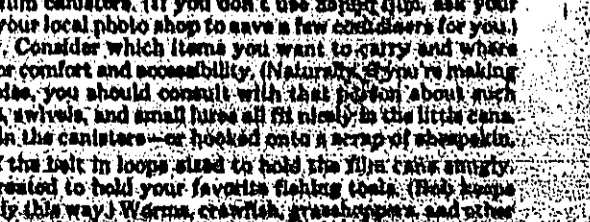 film canisters. (If you don't use 35mm film, ask your
your local photo shop to save a few containers for you.)
. Consider which items you want to carry and where
or comfort and accessibility. (Naturally, if you're making
you should consult with that person about such
, swivels, and small lures all fit nicely in the little cans.
in the canisters—or hooked onto a scrap of sheepskin.
f the belt in loops sized to hold the film cans snugly.
reated to hold your favorite fishing tools. (Bob keeps
ly this way.) Worms, crawfish, grasshoppers, and other